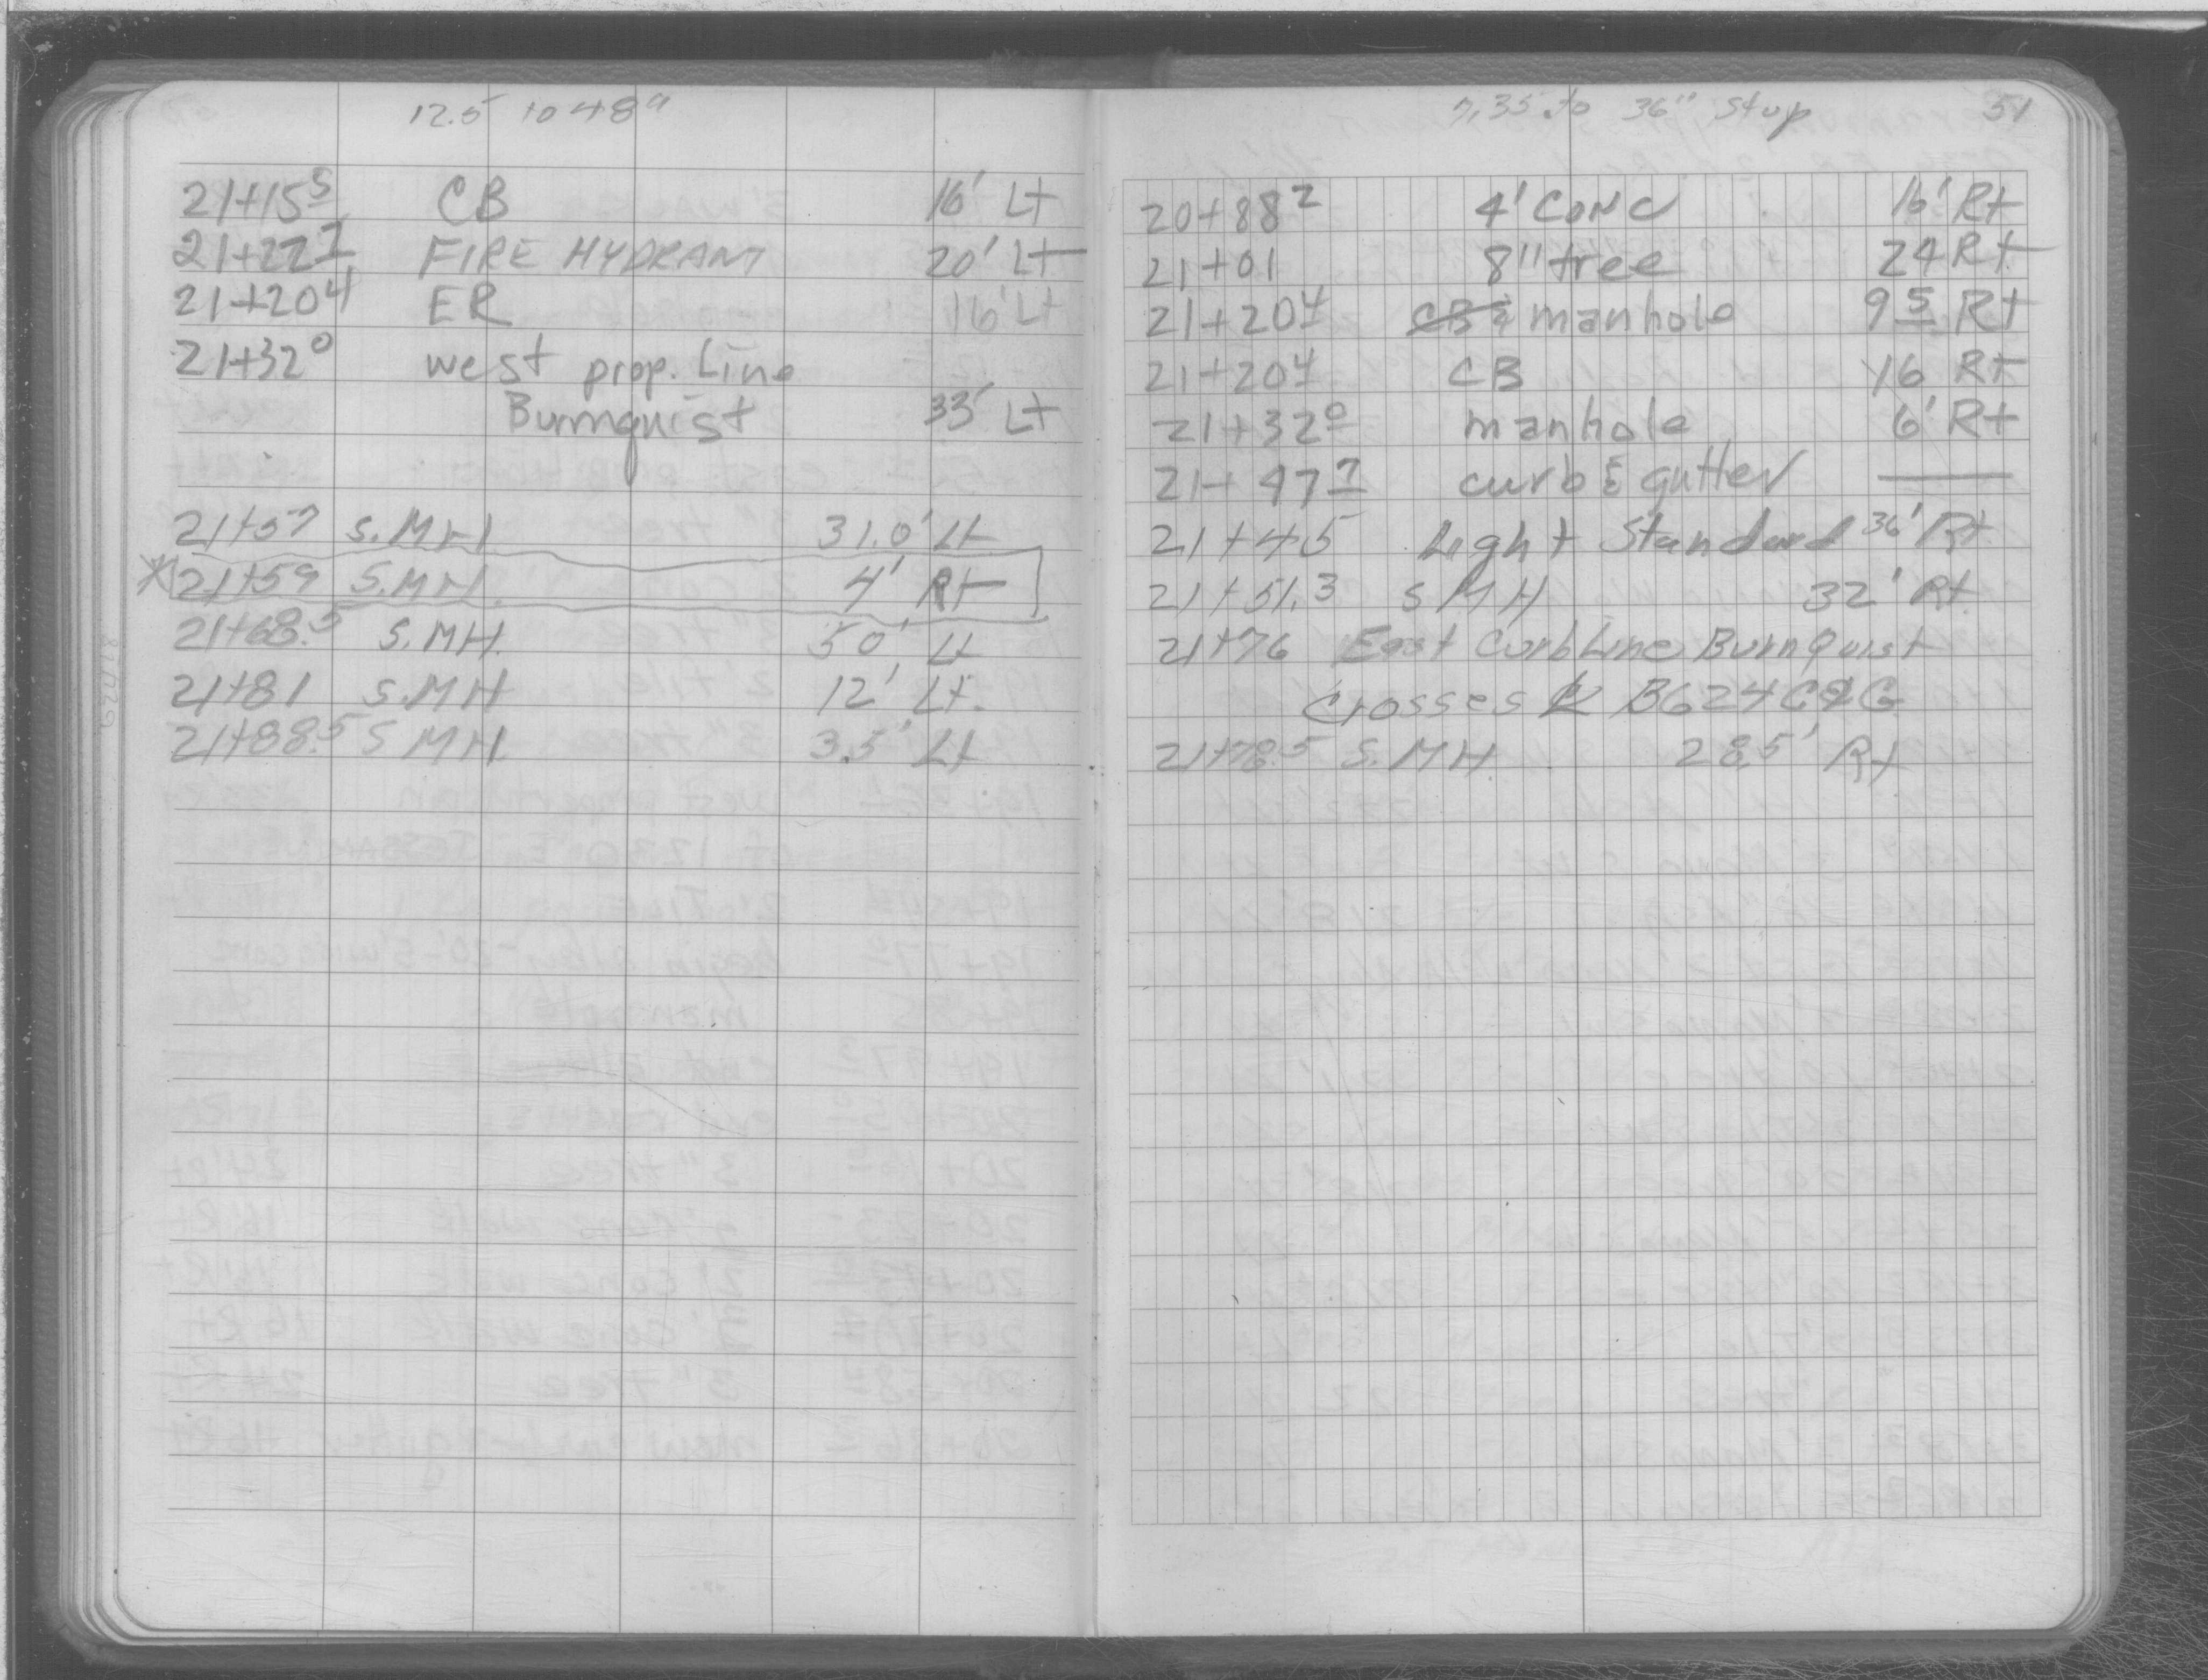 12.5 to 48"
21+15⁵ CB 16' Lt
21+22⁷ FIRE HYDRANT 20' Lt
21+20⁴ ER 16' Lt
21+32⁰ west prop. Line
Burnquist 33' Lt
21+57 S.MH 31.0' Lt
21+59 S.MH. 4' Rt
21+68.5 S.MH. 50' Lt
21+81 S.MH 12' Lt.
21+88.5 S MH. 3.5' Lt
7.35 to 36" Stup 51
20+88² 4' CONC 16' Rt
21+01 8" tree 24 Rt
21+20⁴ CB & manhole 9⁵ Rt
21+20⁴ CB 16 Rt
21+32⁰ manhole 6' Rt
21+47⁷ curb & gutter —
21+45 Light Standard 36' Rt
21+51.3 S MH 32' Rt.
21+76 East Curb Line Burnquist
Crosses B624 C&G
21+78.5 S.MH. 28.5' Rt